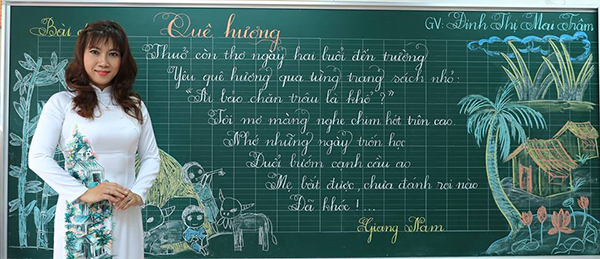 Bài
Quê hương
GV: Đinh Thị Mai Trâm
Thuở còn thơ ngày hai buổi đến trường
Yêu quê hương qua từng trang sách nhỏ:
"Ai bảo chăn trâu là khổ?"
Tôi mơ màng nghe chim hót trên cao
Nhớ những ngày trốn học
Đuổi bướm cạnh cầu ao
Mẹ bắt được, chưa đánh roi nào
Đã khóc!...
Giang Nam